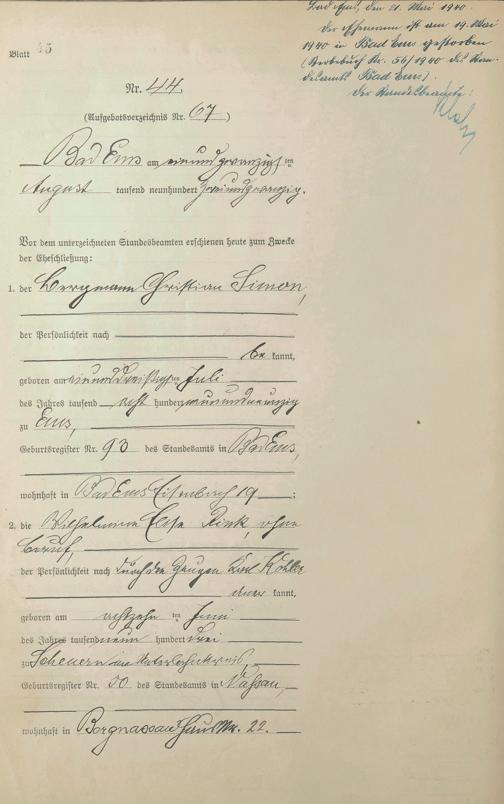 Bad Ems, den 21. Mai 1940.
Der Ehemann ist am 19. Mai
1940 in Bad Ems gestorben
(Sterbebuch Nr. 56/1940 des Stan-
desamts Bad Ems).
Der Standesbeamte:
Blatt 45
Nr. 44.
(Aufgebotsverzeichnis Nr. 67)
Bad Ems am einundzwanzigsten
August tausend neunhundert zweiundzwanzig.
Vor dem unterzeichneten Standesbeamten erschienen heute zum Zwecke
der Eheschließung:
1. der Bergmann Christian Simon,
der Persönlichkeit nach
be kannt,
geboren am einunddreißigsten Juli
des Jahres tausend acht hundert neunundneunzig
zu Ems,
Geburtsregister Nr. 93 des Standesamts in Bad Ems,
wohnhaft in Bad Ems Eisenbach 19 ;
2. die Wilhelmine Elsa Rink, ohne
Beruf,
der Persönlichkeit nach durch den Zeugen Karl Köhler
aner kannt,
geboren am achtzehnten Juni
des Jahres tausend neun hundert drei
zu Scheuern im Unterlahnkreis,
Geburtsregister Nr. 30 des Standesamts in Nassau,
wohnhaft in Bergnassau Haus Nr. 22.